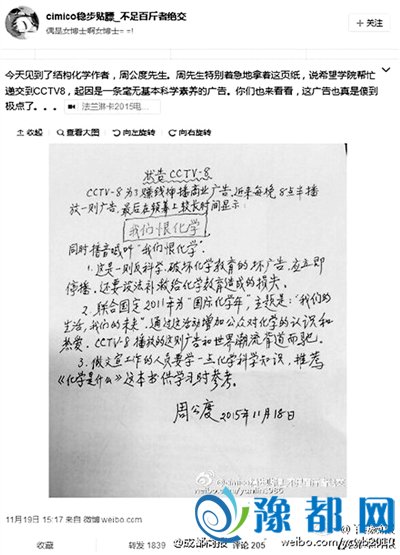 cimico稳步贴膘_不足百斤者绝交
偶是女博士啊女博士= =!
+ 关注
今天见到了结构化学作者,周公度先生。周先生特别着急地拿着这页纸,说希望学院帮忙
递交到CCTV8,起因是一条毫无基本科学素养的广告。你们也来看看,这广告也真是傻到
极点了。。。
法兰琳卡2015电...
收起
查看大图
向左旋转
向右旋转
状告CCTV-8
CCTV-8为了赚钱掉播商业广告,近来每晚8点半播
放一则广告,最后在频幕上较长时间显示:
我们恨化学
同时播音喊叫“我们恨化学”.
1.这是一则反科学、破坏化学教育的坏广告,应立即
停播,还要设法补救给化学教育造成的损失。
2.联合国定2011年为“国际化学年”,主题是:“我们的
生活,我们的未来”,通过这活动增加公众对化学的认识和
热爱。CCTV-8播放的这则广告和世界潮流背道而驰。
3.做文宣工作的人员要学一点化学科学知识,推荐
《化学是什么》这本书供学习时参考。
周公度 2015年11月18日
weibo.com/yunlin1986
11月19日 15:17 来自 微博 weibo.com
收藏
转发 1839
评论 205
@成都商报
豫都网